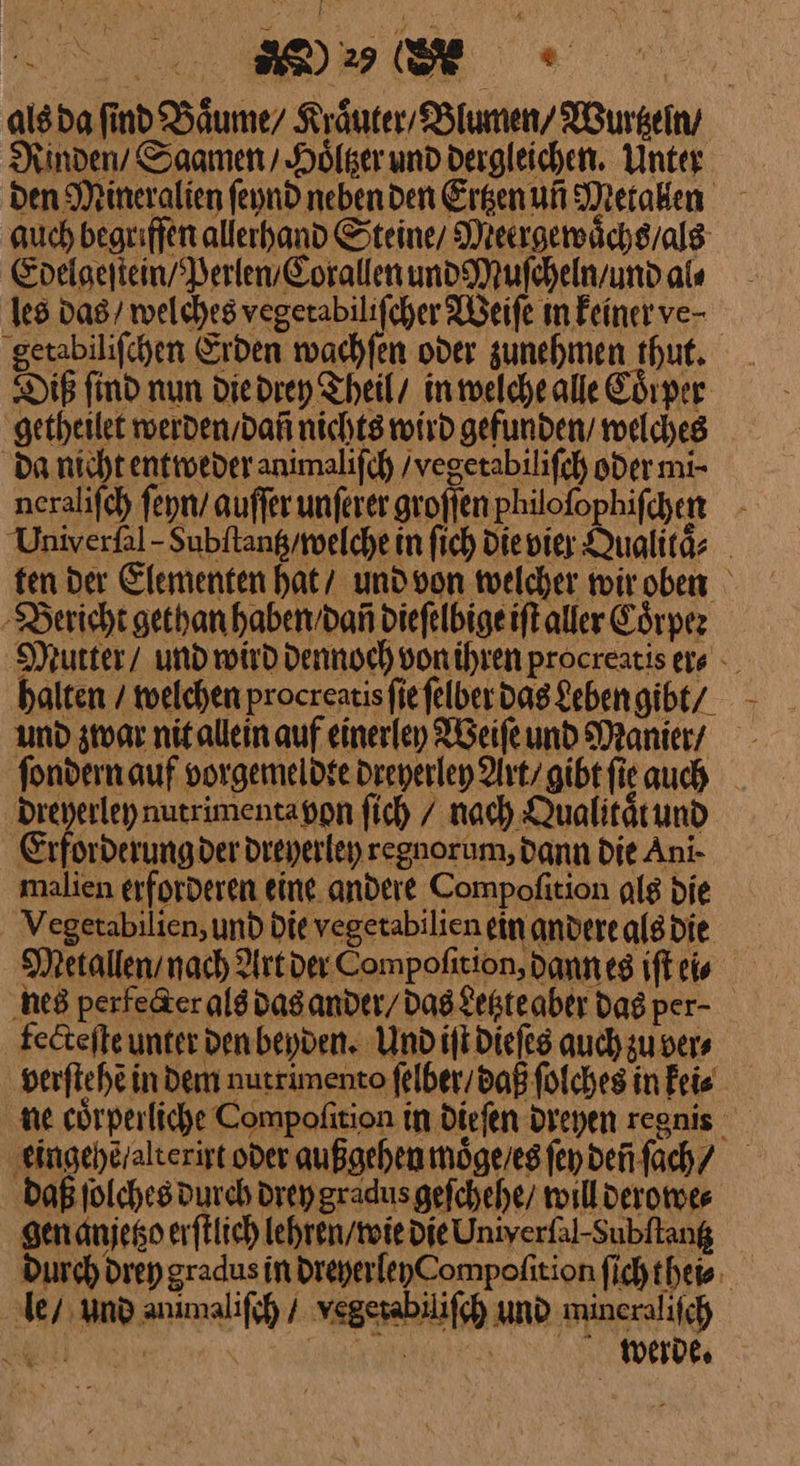 ) 29 (
als da ſind Baͤume/ Kraͤuter/ Blumen/ Wurtzeln/
Rinden/ Saamen / Hoͤltzer und dergleichen. Unter
den Mineralien ſeynd neben den Ertzen uñ Metallen
auch begriffen allerhand Steine/ Meergewaͤchs/als
Edelgeſtein/Perlen/Corallen und Muſcheln/und al⸗
les das / welches vegetabiliſcher Weiſe in keiner ve-
getabiliſchen Erden wachſen oder zunehmen thut.
Diß ſind nun die drey Theil/ in welche alle Coͤrper
getheilet werden/dañ nichts wird gefunden/ welches
da nicht entweder animaliſch /vegetabiliſch oder mi-
neraliſch ſeyn/ auſſer unſerer groſſen philoſophiſchen
Univerſal-Subſtantz/welche in ſich die vier Qualitaͤ⸗
ten der Elementen hat/ und von welcher wir oben
Bericht gethan haben/dañ dieſelbige iſt aller Coͤrper
Mutter/ und wird dennoch von ihren procreatis er⸗
halten / welchen procreatis ſie ſelber das Leben gibt/
und zwar nit allein auf einerley Weiſe und Manier/
ſondern auf vorgemeldte dreyerley Art/ gibt ſie auch
dreyerley nutrimenta von ſich / nach Qualitaͤt und
Erforderung der dreyerley regnorum, dann die Ani-
malien erforderen eine andere Compoſition als die
Vegetabilien, und die vegetabilien ein andere als die
Metallen/nach Art der Compoſition, dann es iſt ei⸗
nes perfecter als das ander/ das Letzte aber das per-
fecteſte unter den beyden. Und iſt dieſes auch zu ver⸗
verſtehē in dem nutrimento ſelber/ daß ſolches in kei⸗
ne coͤrperliche Compoſition in dieſen dreyen regnis
eingehē/alterirt oder außgehen moͤge/es ſey deñ ſach/
daß ſolches durch drey gradus geſchehe/ will derowe⸗
gen anjetzo erſtlich lehren/wie die Univerſal-Subſtantz
durch drey gradus in dreyerley Compoſition ſich thei⸗
le/ und animaliſch / vegetabiliſch und mineraliſch
werde.